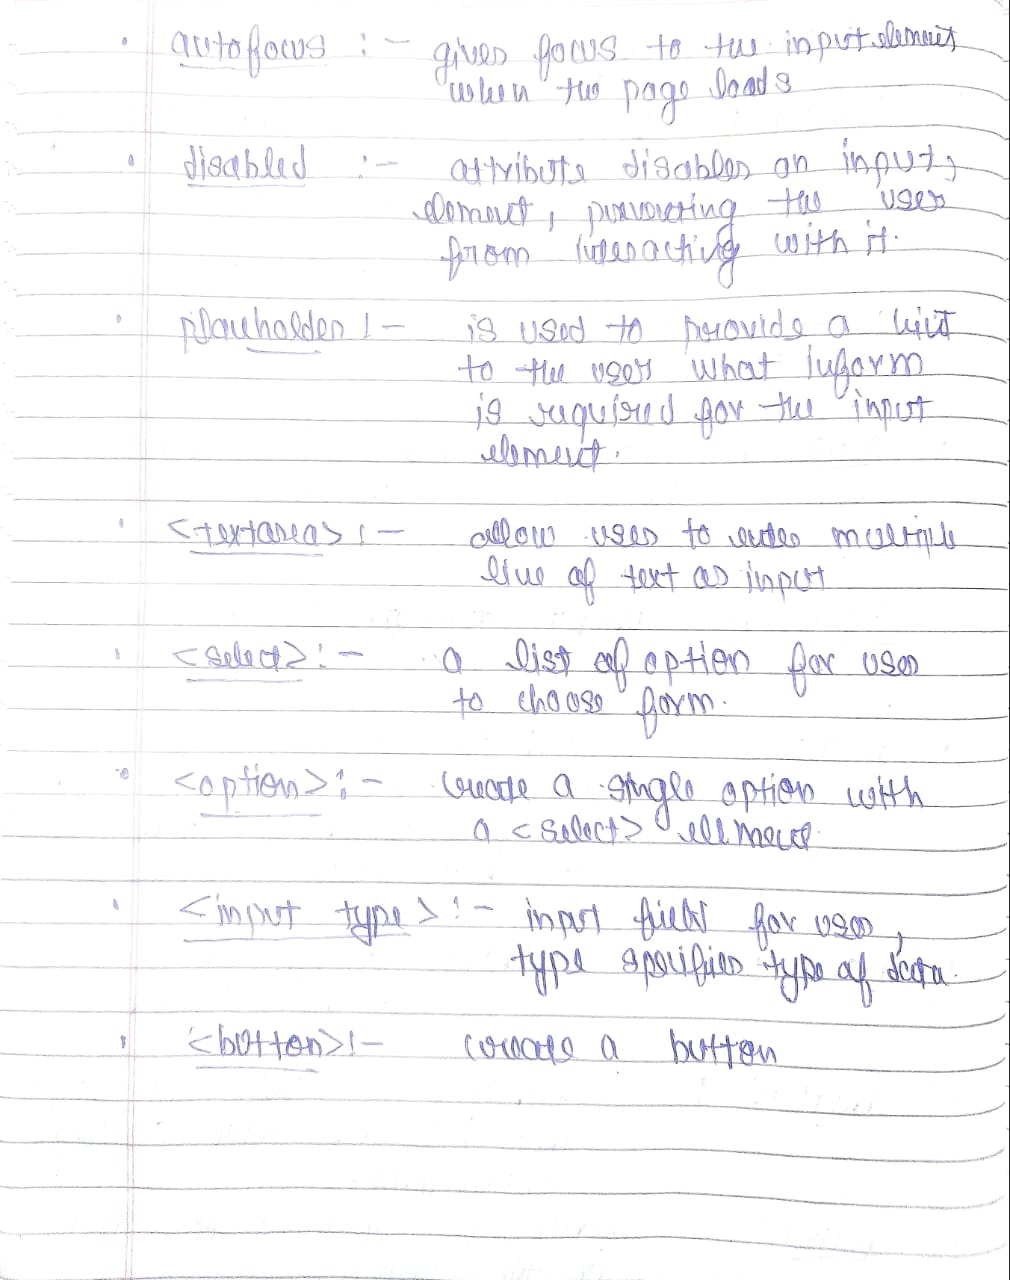 • autofocus :- gives focus to the input element
when the page loads
• disabled :- attribute disables an input,
element, prevereting the user
from interacting with it.
• placeholder :- is used to provide a hint
to the user what inform
is required for the input
element.
• <textarea> :- allow user to enter multiple
line of text as input
• <select> :- a list of option for user
to choose form.
• <option> :- create a single option with
a <select> element
• <input type> :- input field for user,
type specifies type of data.
• <button> :- create a button